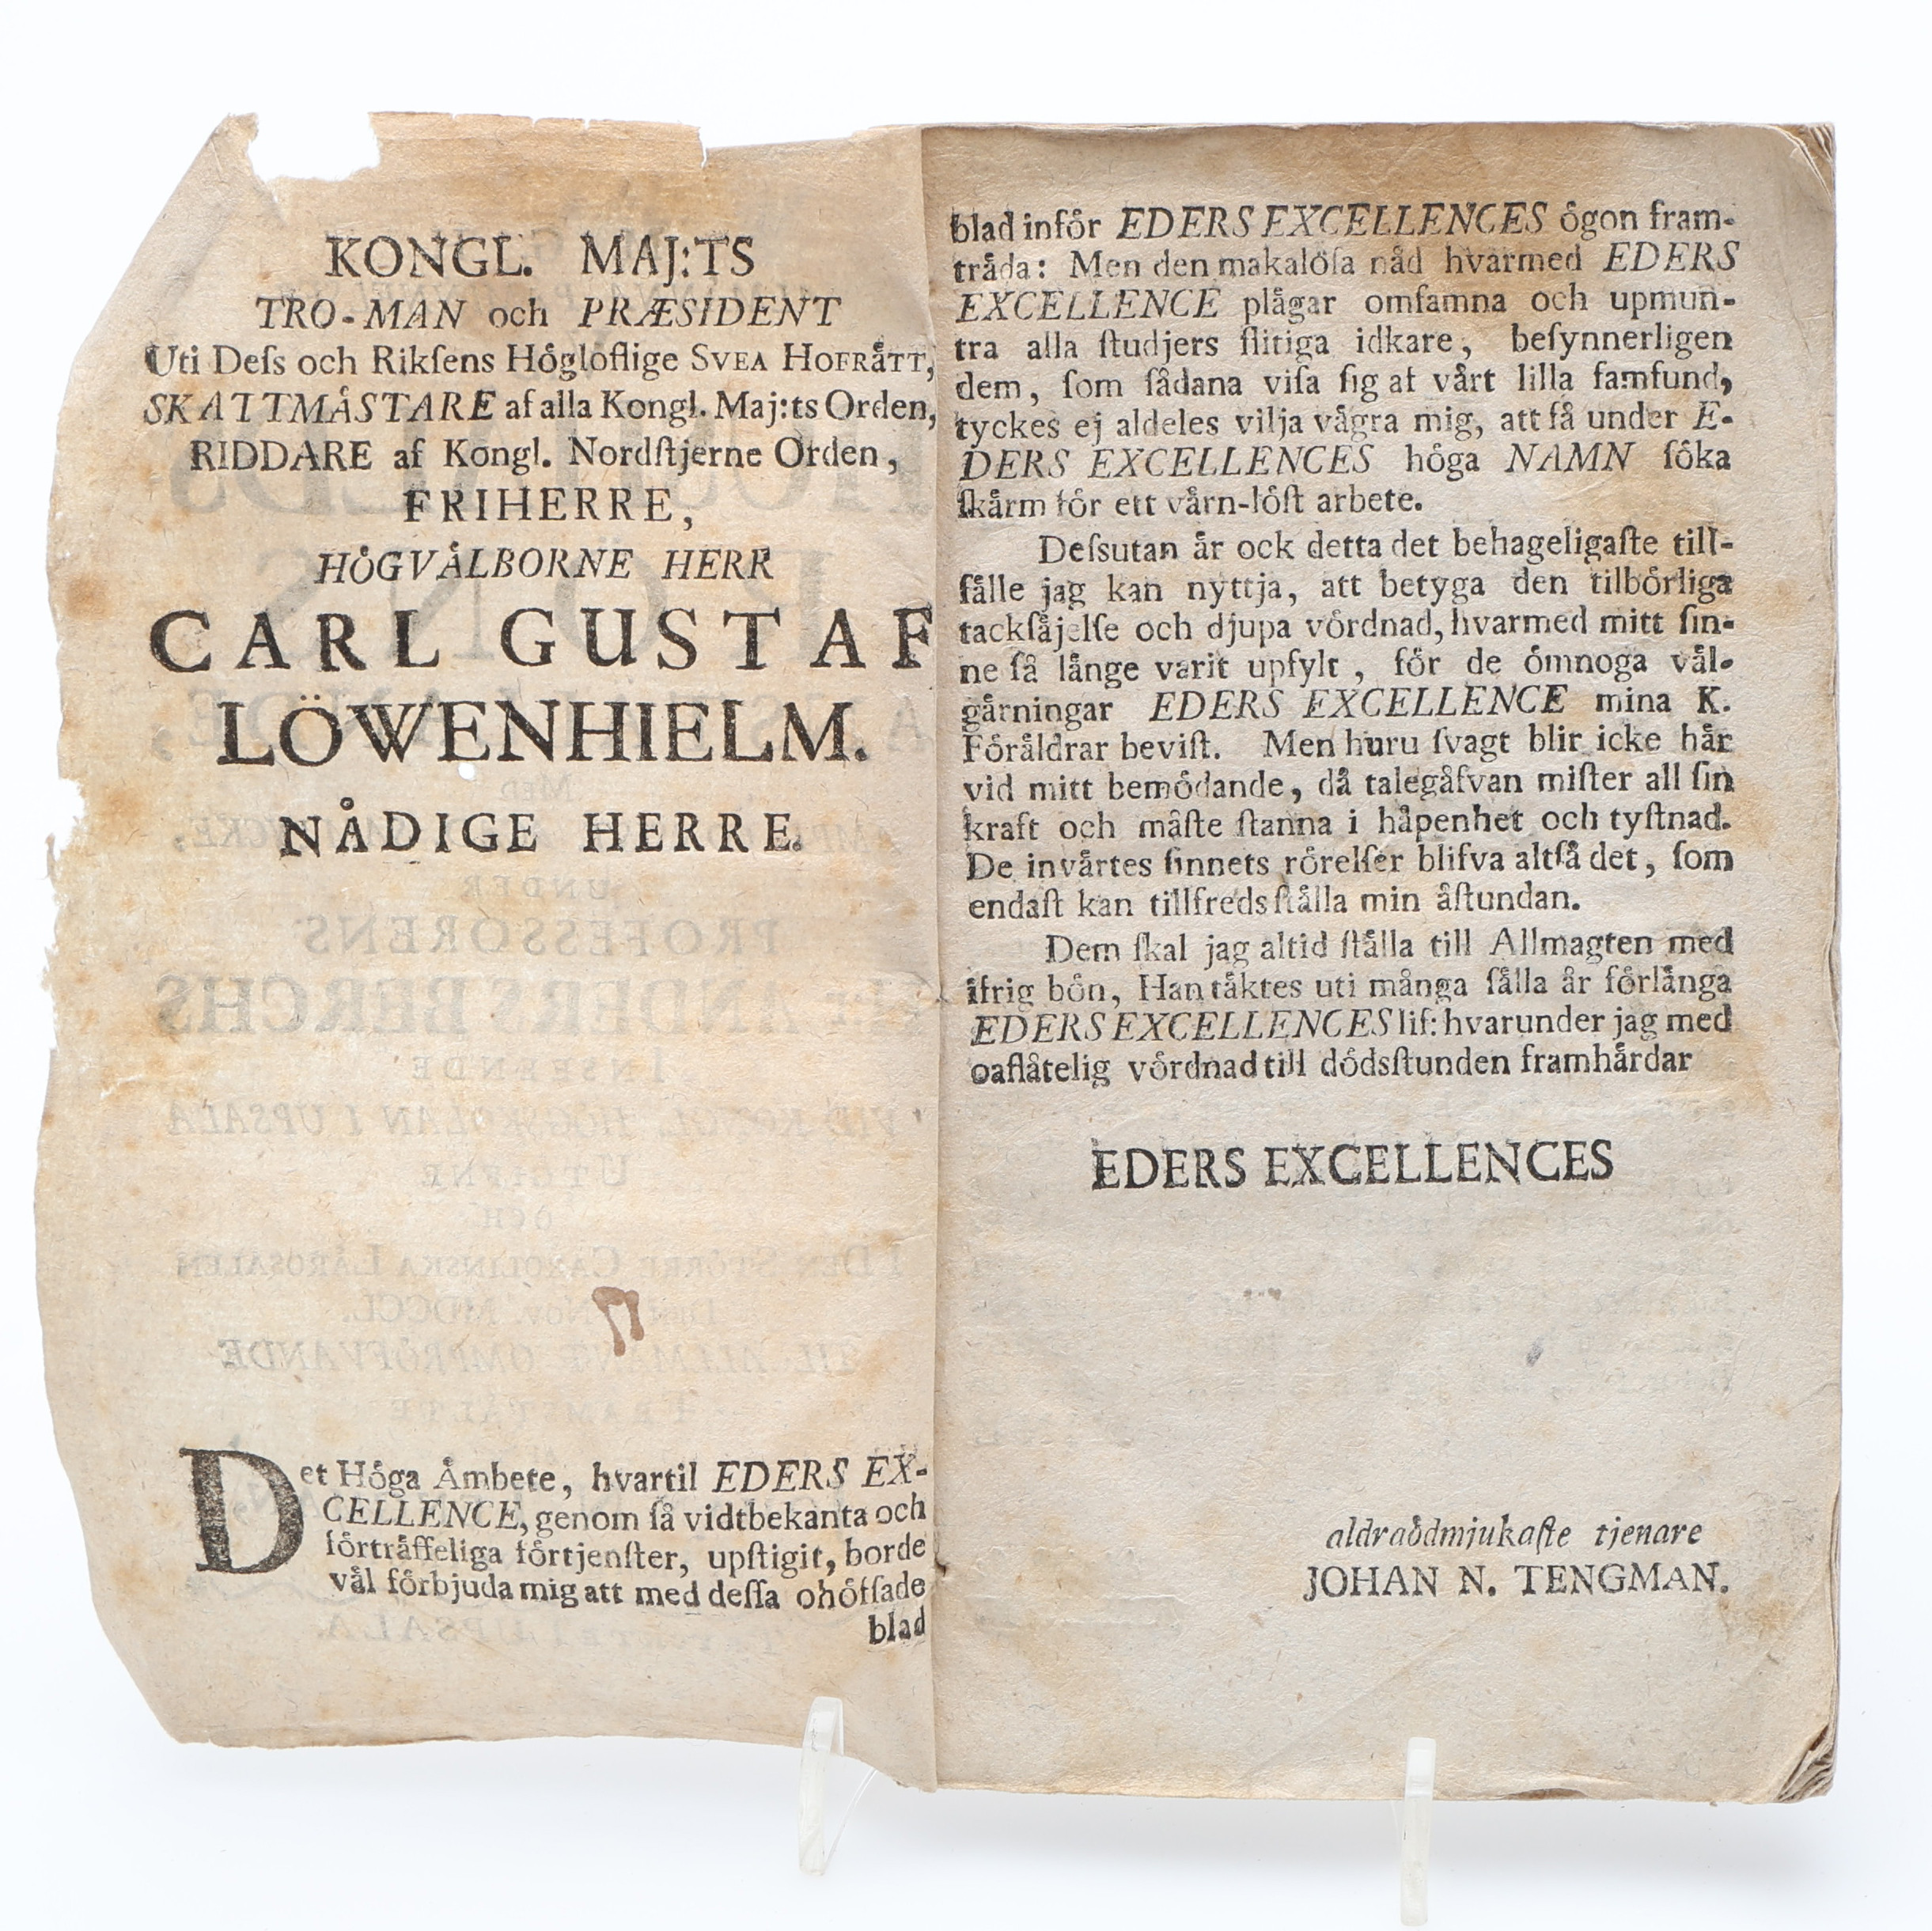 KONGL. MAJ:TS
TRO-MAN och PRÆSIDENT
Uti Deſs och Rikſens Högloflige SVEA HOFRåTT,
SKATTMÅSTARE af alla Kongl. Maj:ts Orden,
RIDDARE af Kongl. Nordſtjerne Orden,
FRIHERRE,
HöGVÅLBORNE HERR
CARL GUSTAF
LÖWENHIELM.
NÅDIGE HERRE.
Det Höga Åmbete, hvartil EDERS EX-
CELLENCE, genom ſå vidtbekanta och
förtråffeliga förtjenſter, upſtigit, borde
vål förbjuda mig att med deſſa ohöfſade
blad
blad inför EDERS EXCELLENCES ögon fram-
tråda: Men den makalöſa nåd hvarmed EDERS
EXCELLENCE plågar omfamna och upmun-
tra alla ſtudjers flitiga idkare, beſynnerligen
dem, ſom ſådana viſa ſig af vårt lilla ſamfund,
tyckes ej aldeles vilja vågra mig, att få under E-
DERS EXCELLENCES höga NAMN ſöka
ſkårm för ett vårn-löſt arbete.
Deſsutan år ock detta det behageligaſte till-
fålle jag kan nyttja, att betyga den tilbörliga
tackſåjelſe och djupa vördnad, hvarmed mitt ſin-
ne få långe varit upfylt, för de ömnoga vål-
gårningar EDERS EXCELLENCE mina K.
Föråldrar beviſt. Men huru ſvagt blir icke hår
vid mitt bemödande, då talegåfvan miſter all ſin
kraft och måſte ſtanna i håpenhet och tyſtnad.
De invårtes ſinnets rörelſer blifva altſå det, ſom
endaſt kan tillfredsſtålla min åſtundan.
Dem ſkal jag altid ſtålla till Allmagten med
ifrig bön, Han tåktes uti många ſålla år förlånga
EDERS EXCELLENCES lif: hvarunder jag med
oaflåtelig vördnad till dödsſtunden framhårdar
EDERS EXCELLENCES
aldraödmjukaſte tjenare
JOHAN N. TENGMAN.